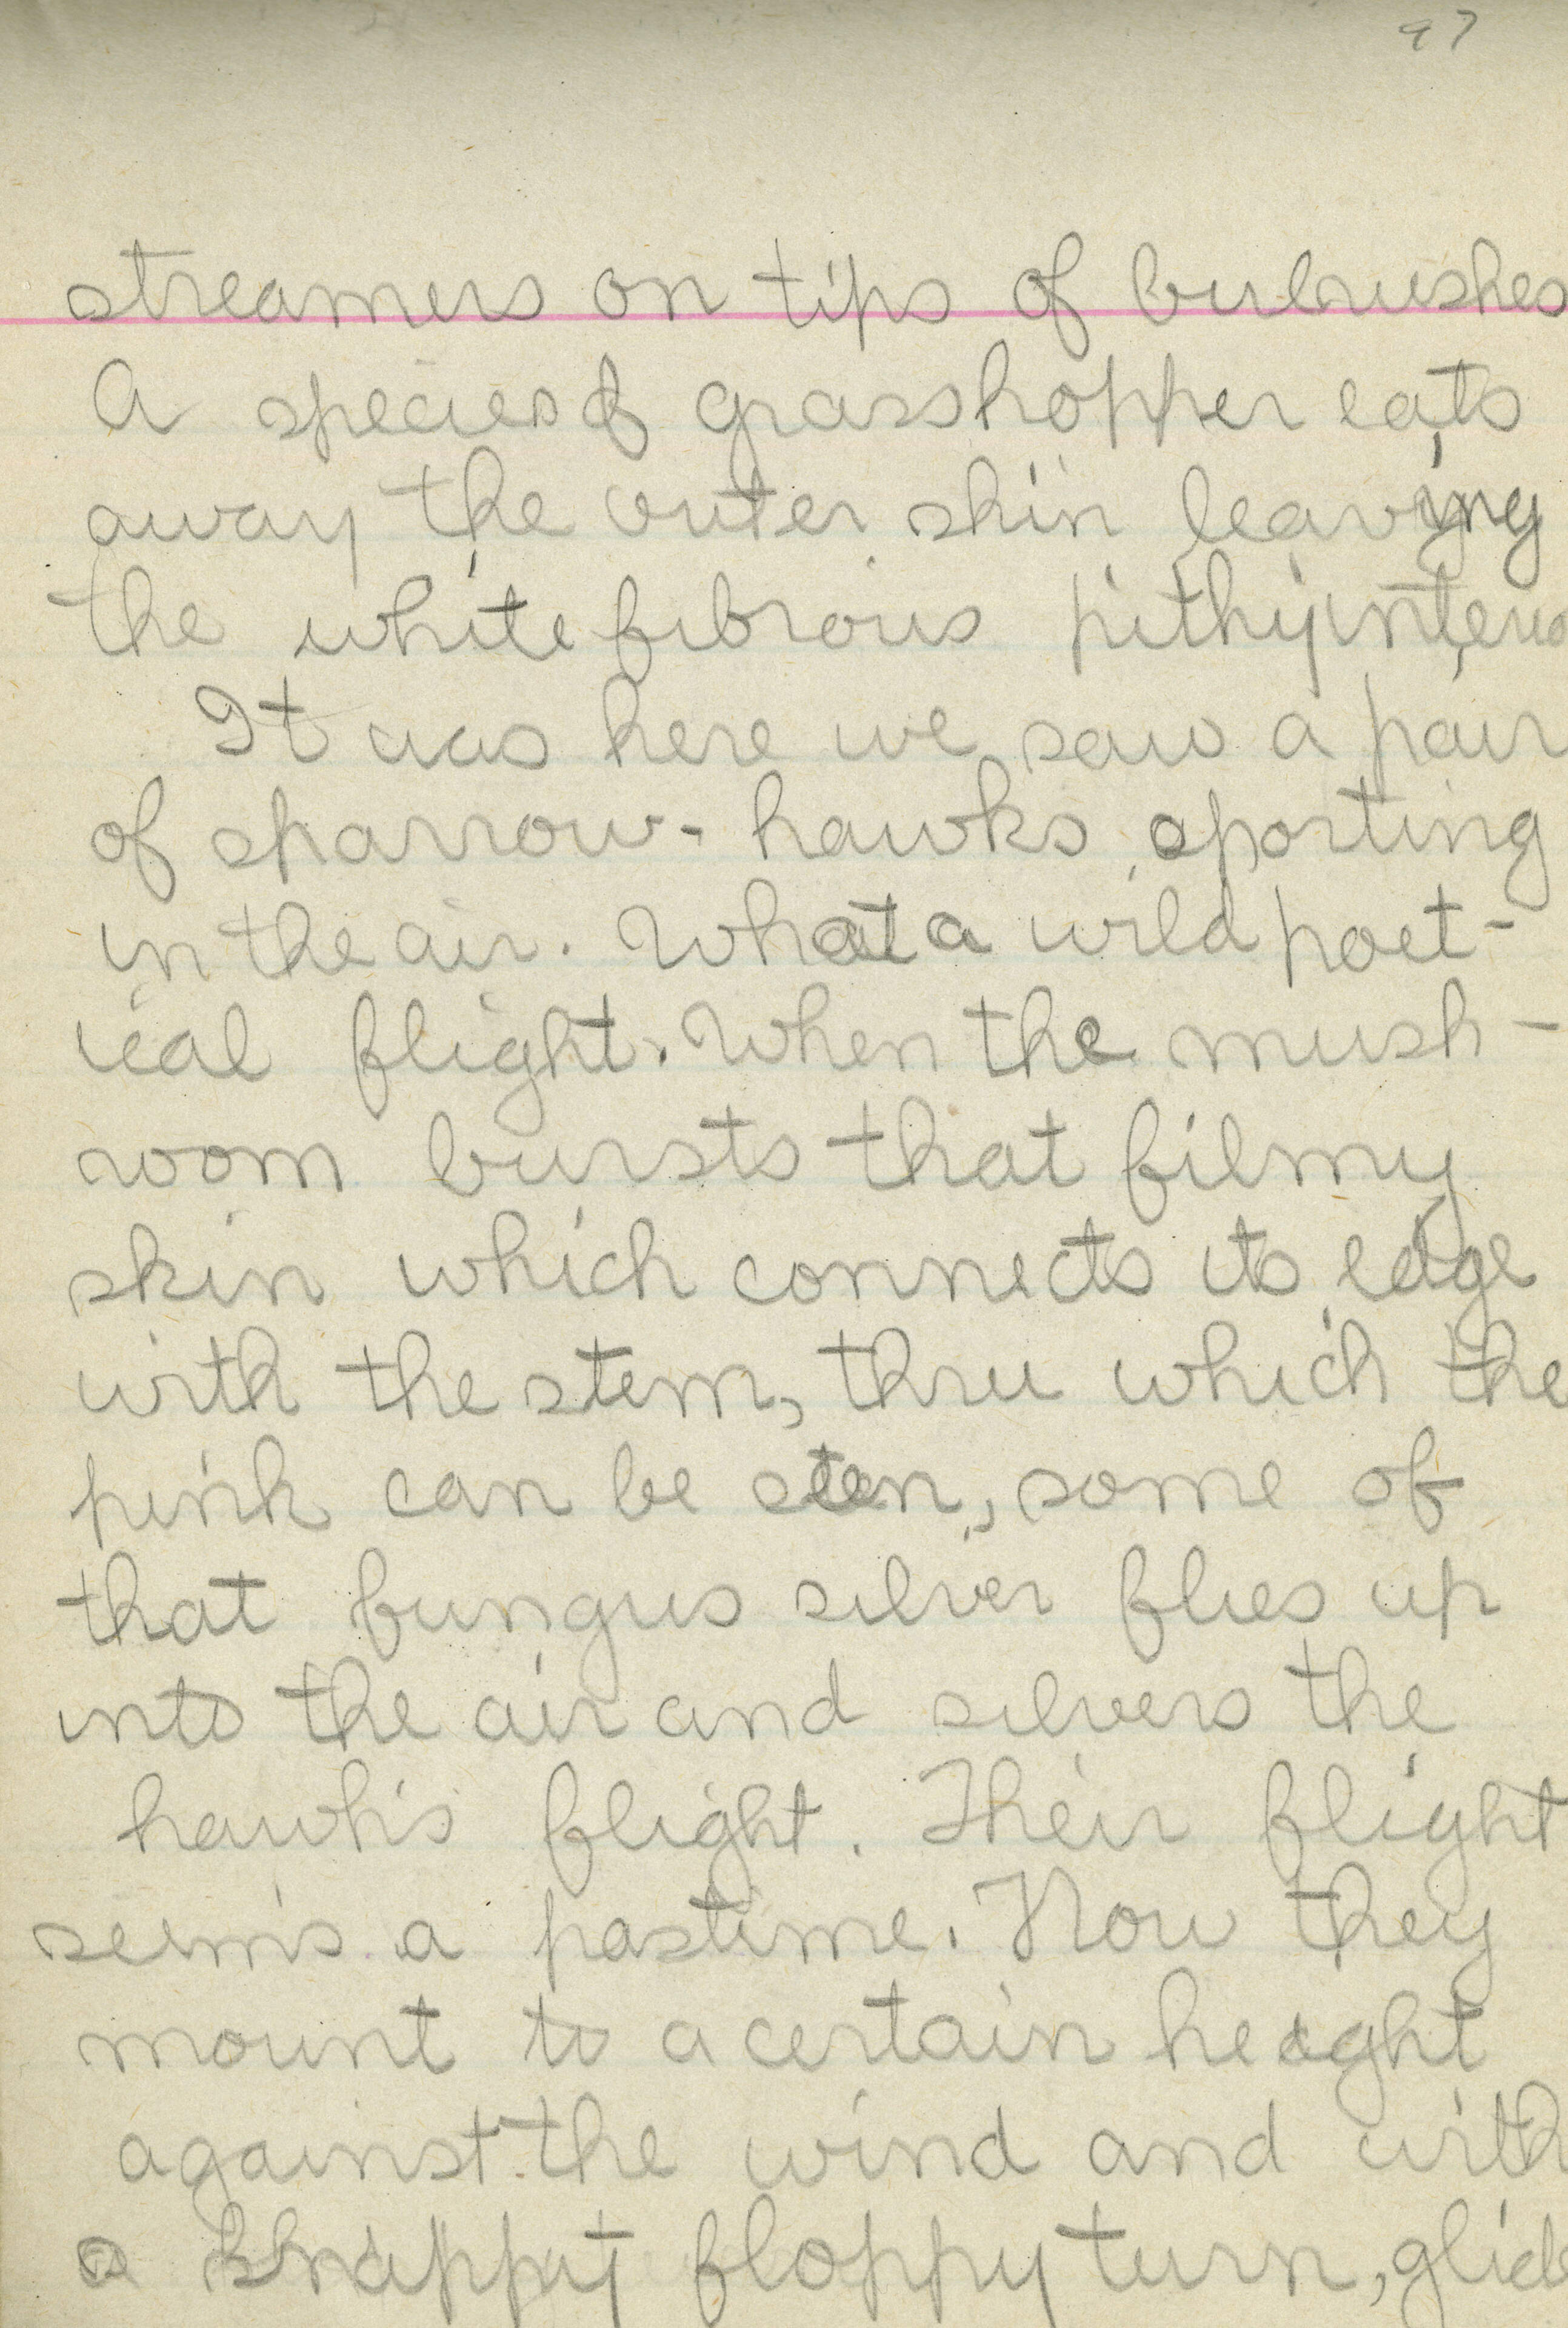 97
streamers on tips of bulrushes
A species of grasshopper eats
away the outer skin leaving
the white fibrous pithy
It was here we saw a pair
of sparrow-hawks sporting
in the air. What a wild poet-
ical flight. When the mush-
room bursts that filmy
skin which connects its edge
with the stem, thru which the
pink can be seen, some of
that fungus silver flies up
into the air and silvers the
hawk's flight. Their flight
seems a pastime. Now they
mount to a certain height
against the wind and with
a floppy turn, glide